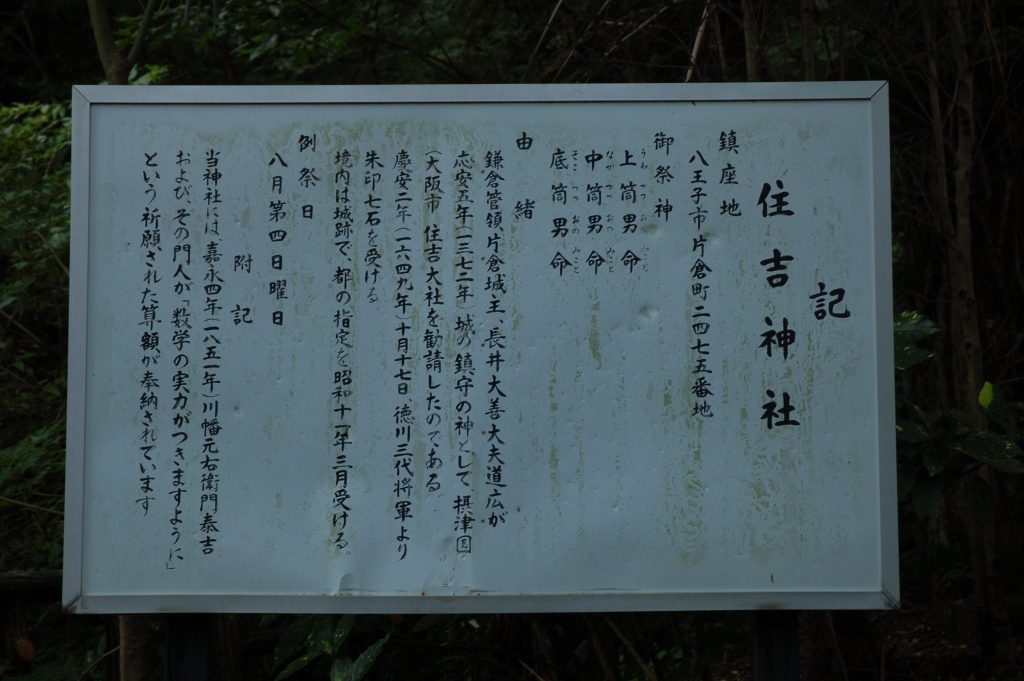 記
住吉神社
鎮座地
八王子市片倉町二四七五番地
御祭神
上筒男命
うわつつおみこと
中筒男命
なかつつおみこと
底筒男命
そこつつおのみこと
由緒
鎌倉管領片倉城主、長井大善大夫道広が
応安五年(一三七二年)城の鎮守の神として、摂津国
(大阪市)住吉大社を勧請したのである。
慶安二年(一六四九年)十月十七日、徳川三代将軍より
朱印七石を受ける
境内は城跡で、都の指定を昭和十一年三月受ける。
例祭日
八月第四日曜日
附記
当神社には嘉永四年(一八五一年)川幡元右衛門泰吉
および、その門人が「数学の実力がつきますように」
という祈願された算額が奉納されています